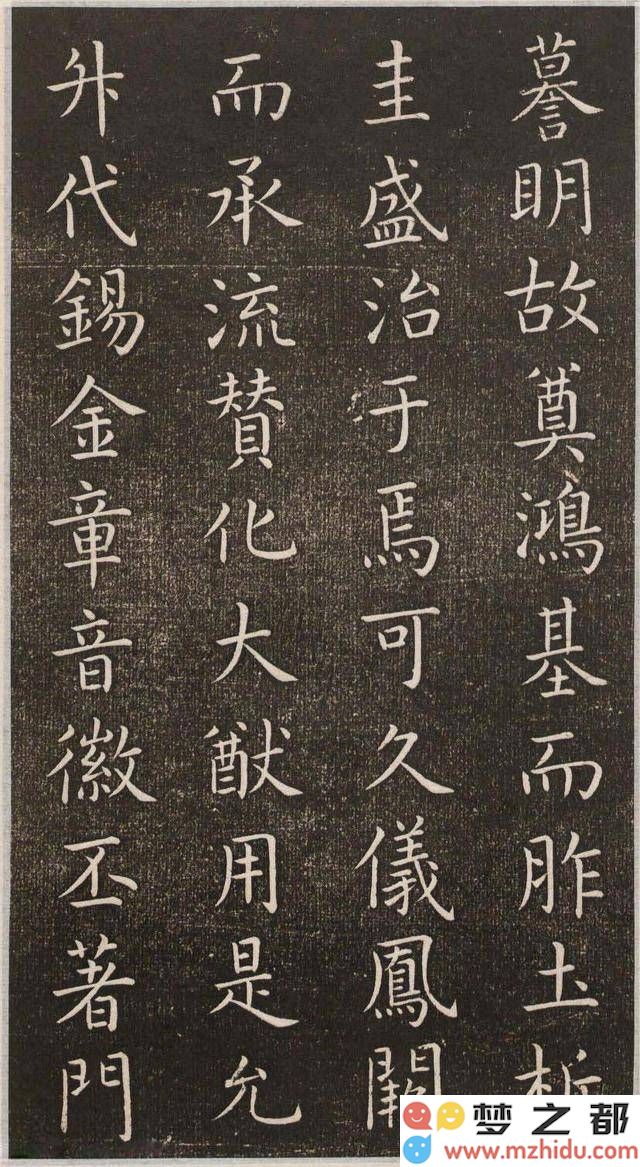 謩明故奠鴻基而胙土析
圭盛治于焉可久儀鳳闕
而承流賛化大猷用是允
升代錫金章音徽丕著門
梦之都
www.mzhidu.com